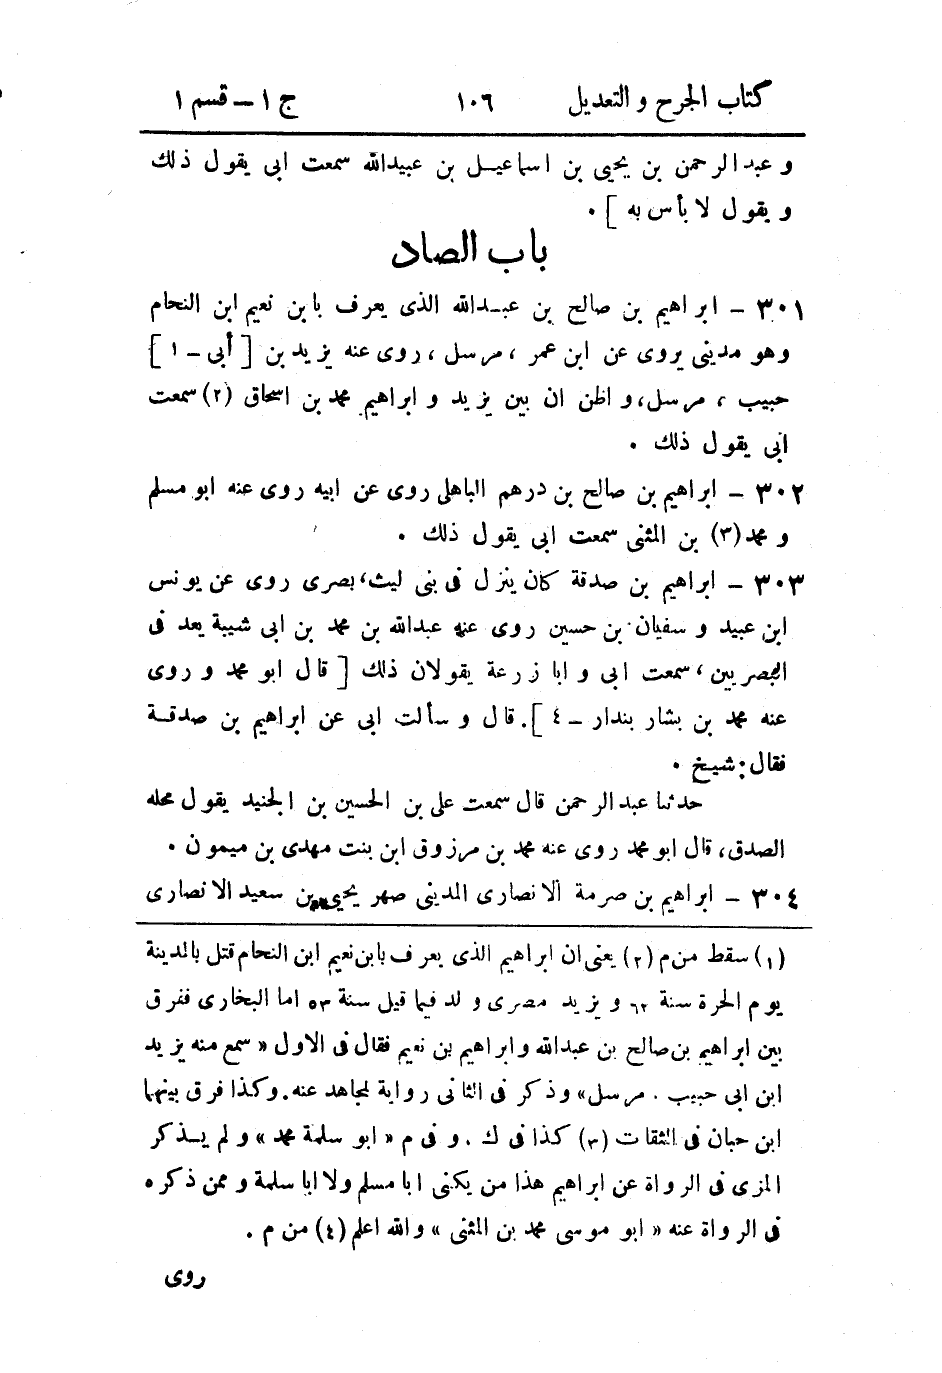 كتاب الجرح والتعديل ١٠٦ ج ١ – قسم ١
و عبد الرحمن بن يحيى بن اسماعيل بن عبيدالله سمعت ابى يقول ذلك
و يقول لا بأس به ] .
باب الصاد
٣٠١ – ابراهيم بن صالح بن عبدالله الذى يعرف بابن نعيم ابن النحام
وهو مدينى يروى عن ابن عمر ، مرسل ، روى عنه يزيد بن [ أبى – ١ ]
حبيب ، مرسل، و اظن ان بين يزيد و ابراهيم محمد بن اسحاق (٢) سمعت
ابى يقول ذلك .
٣٠٢ – ابراهيم بن صالح بن درهم الباهلى روى عن ابيه روى عنه ابو مسلم
و محمد (٣) بن المثنى سمعت ابى يقول ذلك .
٣٠٣ – ابراهيم بن صدقة كان ينزل فى بنى ليث، بصرى روى عن يونس
ابن عبيد و سفيان بن حسين روى عنه عبدالله بن محمد بن ابى شيبة يعد فى
البصريين ، سمعت ابى و ابا زرعة يقولان ذلك [ قال ابو محمد و روى
عنه محمد بن بشار بندار – ٤ ]. قال و سألت ابى عن ابراهيم بن صدقة
فقال: شيخ .
حدثنا عبد الرحمن قال سمعت على بن الحسين بن الجنيد يقول محله
الصدق، قال ابو محمد روى عنه محمد بن مرزوق ابن بنت مهدى بن ميمون .
٣٠٤ – ابراهيم بن صرمة الانصارى المدينى صهر يحيى بن سعيد الانصارى
(١) سقط من م (٢) يعنى ان ابراهيم الذى يعرف بابن نعيم ابن النحام قتل بالمدينة
يوم الحرة سنة ٦٢ و يزيد مصرى و لد فيما قيل سنة ٥٣ اما البخارى ففرق
بين ابراهيم بن صالح بن عبدالله و ابراهيم بن نعيم فقال فى الاول « سمع منه يزيد
ابن ابى حبيب . مرسل» وذكر فى الثانى رواية لمجاهد عنه. وكذا فرق بينهما
ابن حبان فى الثقات (٣) كذا فى ك . و فى م « ابو سلمة محمد » و لم يذكر
المزى فى الرواة عن ابراهيم هذا من يكنى ابا مسلم ولا ابا سلمة و ممن ذكره
فى الرواة عنه « ابو موسى محمد بن المثنى » والله اعلم (٤) من م .
روى